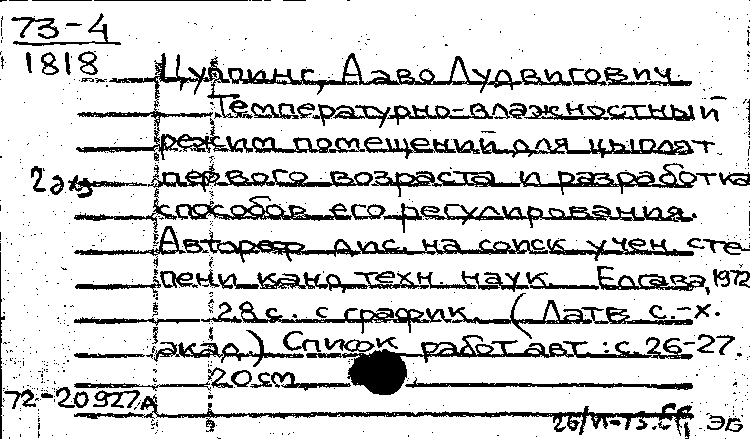 73-4
1818
Цуппинг,Ааво Лудвигович.
Температурно-влажностный
режим помещений для цыплят
2 экз первого возраста и разработка
способов его регулирования.
Автореф. дис. на соиск. учен. сте-
пени канд. техн. наук. Елгава, 1972
28 с. с график. (Латв. с.-х.
акад.) Список работ авт.: с. 26-27.
20 cm
72-20927А
26/VI-73. ЭВ